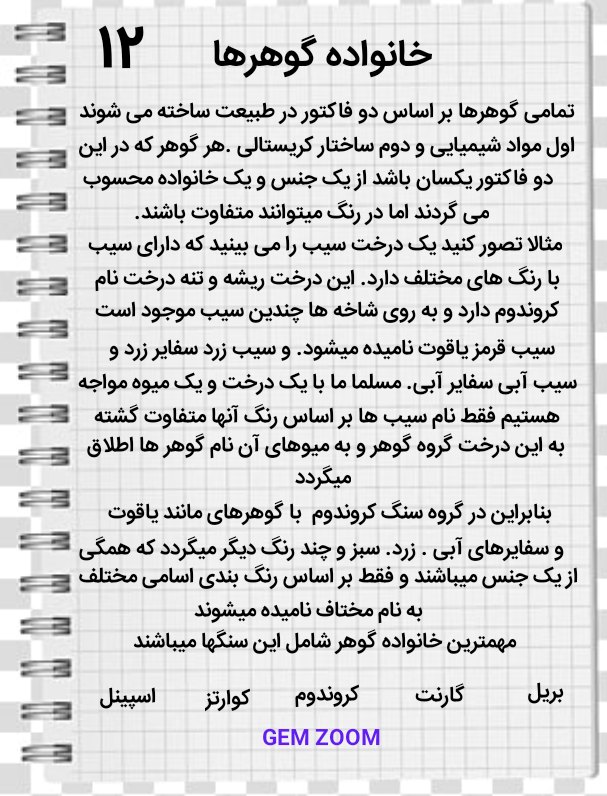 خانواده گوهرها ۱۲
تمامی گوهرها بر اساس دو فاکتور در طبیعت ساخته می شوند
اول مواد شیمیایی و دوم ساختار کریستالی .هر گوهر که در این
دو فاکتور یکسان باشد از یک جنس و یک خانواده محسوب
می گردند اما در رنگ میتوانند متفاوت باشند.
مثالا تصور کنید یک درخت سیب را می بینید که دارای سیب
با رنگ های مختلف دارد. این درخت ریشه و تنه درخت نام
کروندوم دارد و به روی شاخه ها چندین سیب موجود است
سیب قرمز یاقوت نامیده میشود. و سیب زرد سفایر زرد و
سیب آبی سفایر آبی. مسلما ما با یک درخت و یک میوه مواجه
هستیم فقط نام سیب ها بر اساس رنگ آنها متفاوت گشته
به این درخت گروه گوهر و به میوهای آن نام گوهر ها اطلاق
میگردد
بنابراین در گروه سنگ کروندوم با گوهرهای مانند یاقوت
و سفایرهای آبی . زرد. سبز و چند رنگ دیگر میگردد که همگی
از یک جنس میباشند و فقط بر اساس رنگ بندی اسامی مختلف
به نام مختاف نامیده میشوند
مهمترین خانواده گوهر شامل این سنگها میباشند
بریل گارنت کروندوم کوارتز اسپینل
GEM ZOOM